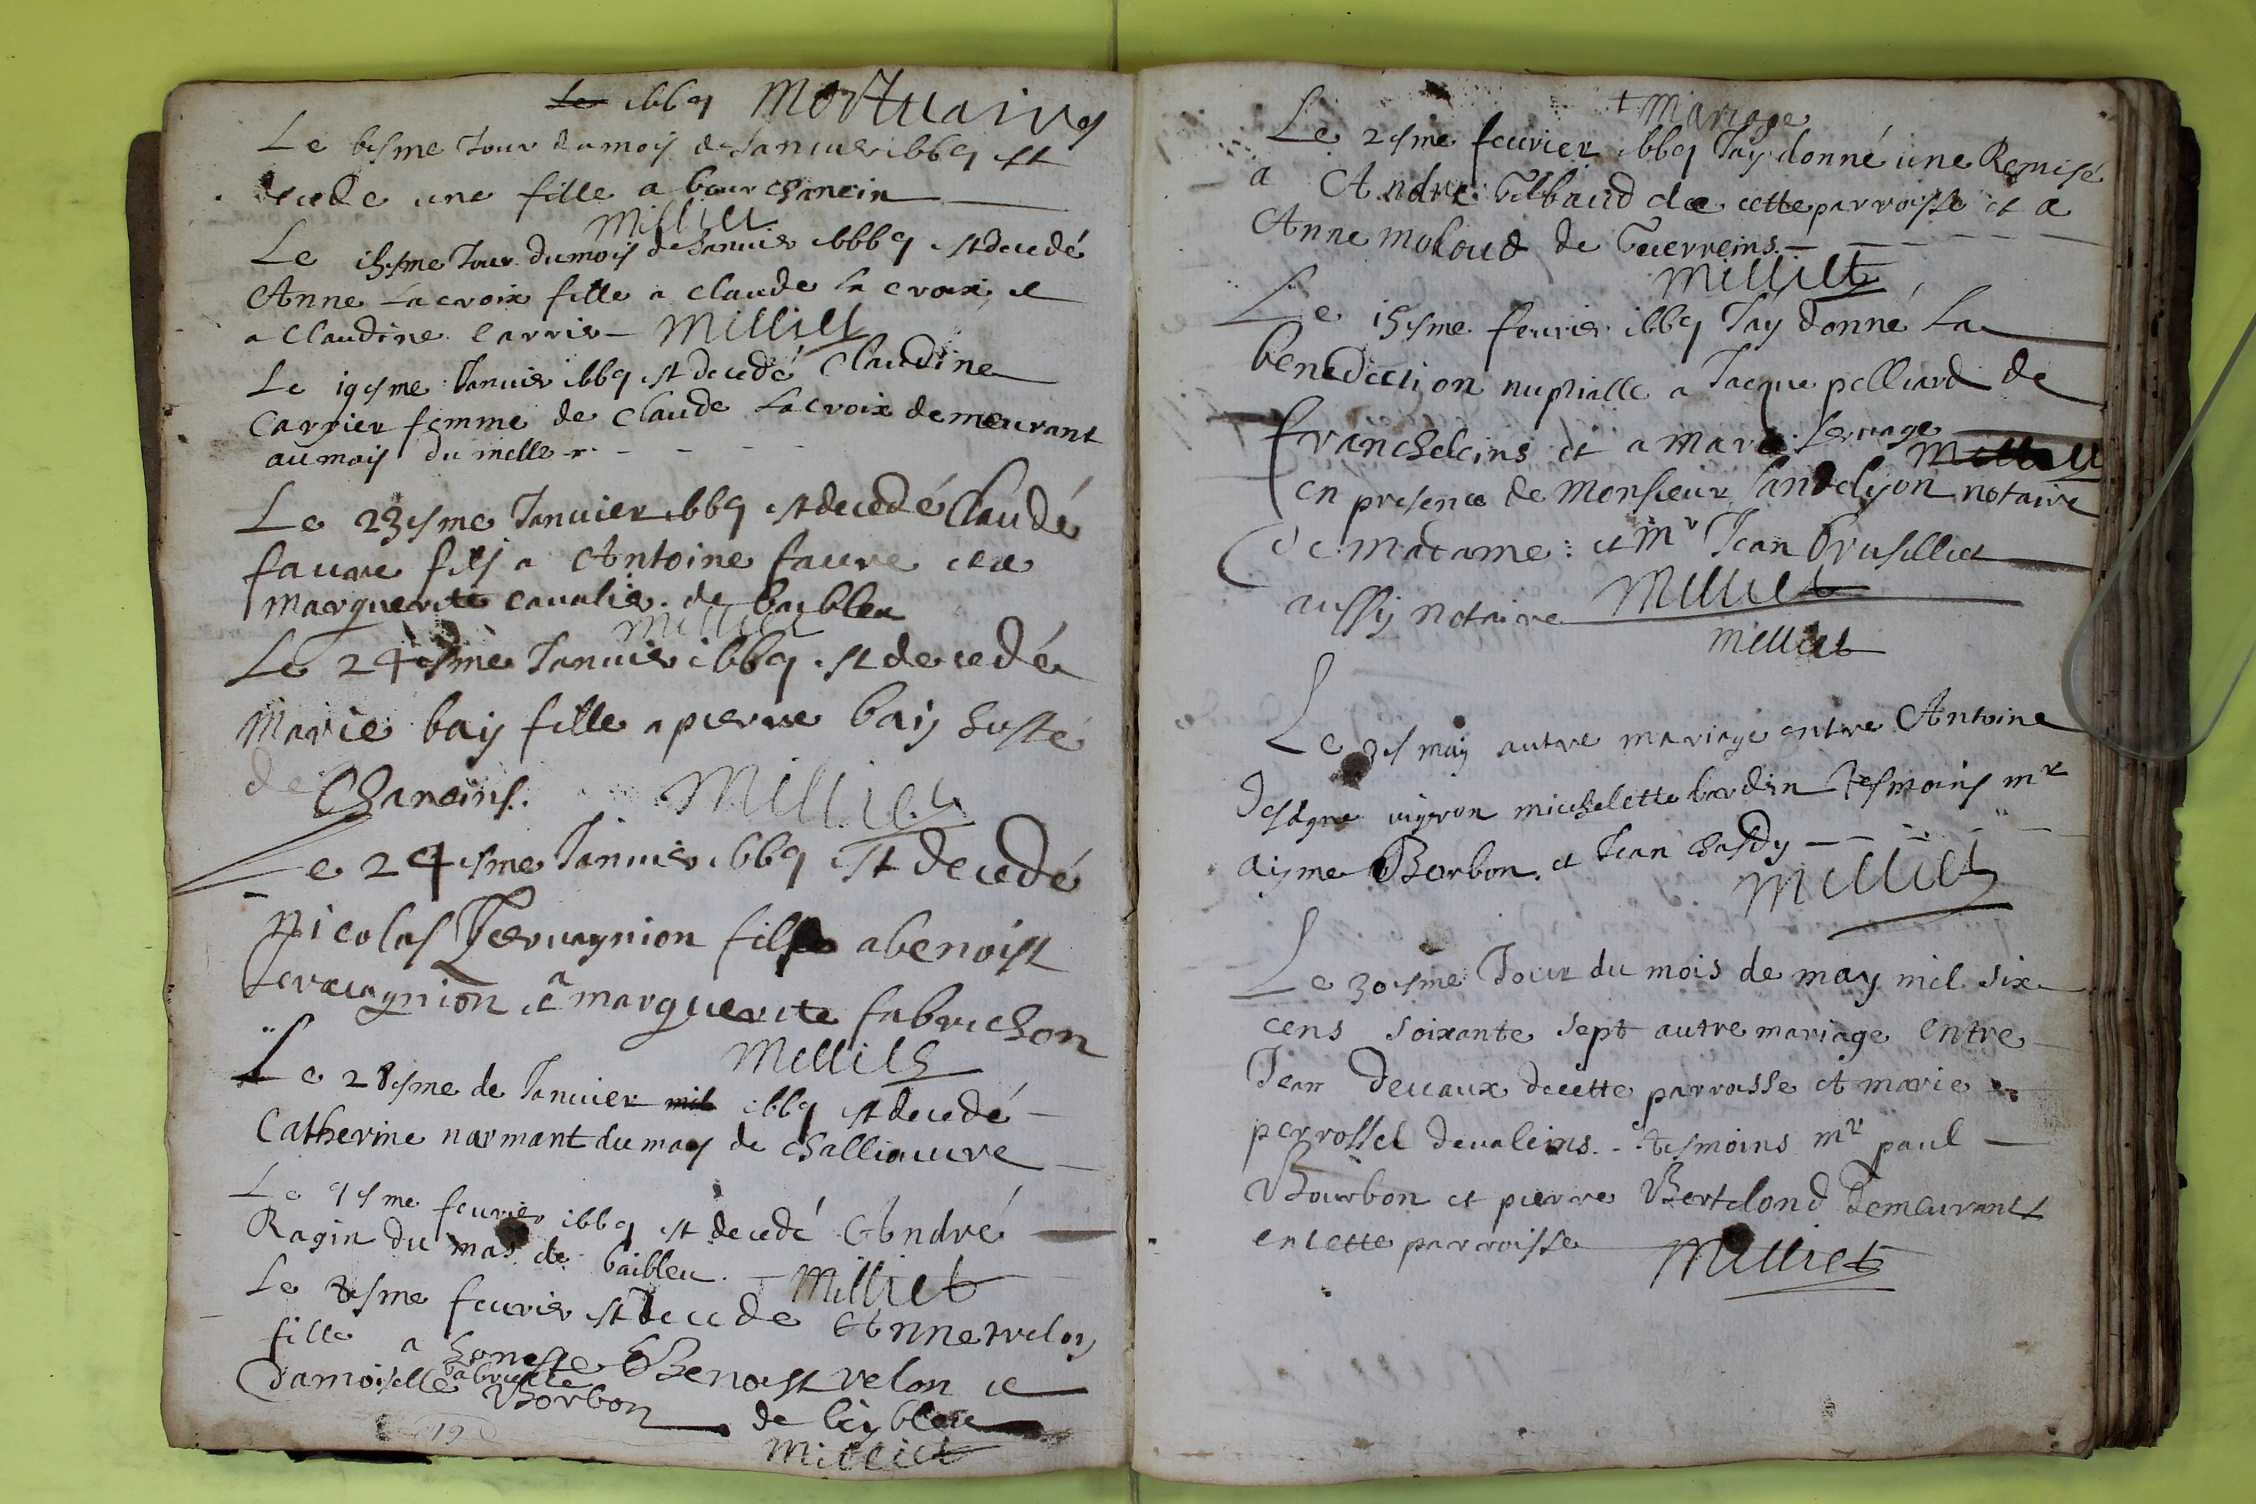 Le 1667 Mortuaires
Le 6esme Jour du mois de Januier 1667 est
decede une fille a bour chanein
Milliet
Le 15esme Jour du mois de Januier 16667 est decedé
Anne Lacroix fille a claude la croix et
a Claudine Carrie Milliet
Le 19esme Januier 1667 est decedé Claudine
Carrier femme de claude Lacroix demeurant
au mays du
Le 23esme Januier 1667 est decedé Claude
faure fils a Antoine faure et a
marguerite caualier de baibleu
milliet
Le 24esme Januier 1667 est decedé
Marie bay fille a pierre bay hoste
de Chaneins. Milliet
Le 24esme Januier 1667 est decedé
Nicolas Teruagnion fils a benoist
teruagnion et a marguerite fabrichon
Milliet
Le 28esme de Januier mil 1667 est decedé
Catherine narmant du mas de challiouure
Le 7esme feurier 1667 est decedé André
Ragin du mas de baibleu. Milliet
Le 8esme feurier est decede Anne velon
fille a honeste Benoist velon et
Damoiselle Borbon de beybleu
Milliet
+ Mariage
Le 2esme feurier 1667 Jay donné une Remise
a Andre Gilbaud de cette parroisse et a
Anne moloud de Guerreins.
Milliet
Le 15esme feurier 1667 Jay donné La
benediction nuptialle a Jacque pelliard de
francheleins et a Marie Seruage Milliet
en presence de Monsieur Sandelyon notaire
de Madame : et Mr Jean Brusilliet
aussy notaire Milliet
milliet
Le 3es may autre mariage entre Antoine
Desagne uigron michelette bordin tesmoins mr
Ayme Borbon et Jean
Milliet
Le 30esme Jour du mois de may mil six
cens soixante sept autre mariage entre
Jean Deuaux decette parroisse et marie
perrossel deualeins. tesmoins mr paul
Bourbon et pierre Bertelond Demeurant
en cette parroisse Milliet